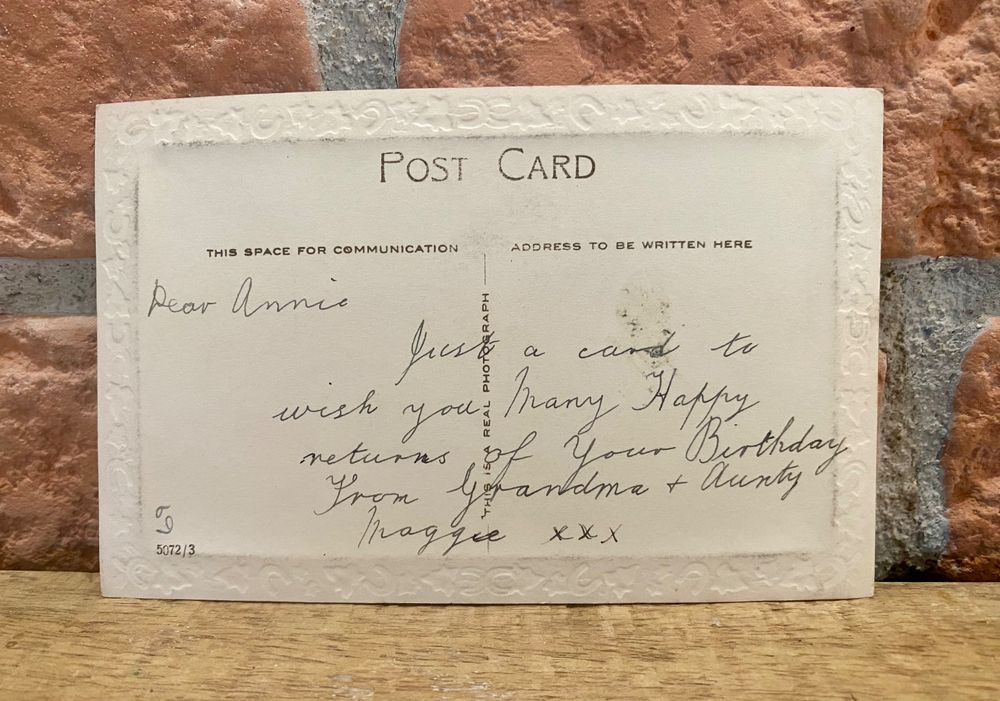 POST CARD
THIS SPACE FOR COMMUNICATION
ADDRESS TO BE WRITTEN HERE
THIS IS A REAL PHOTOGRAPH
Dear Annie
Just a card to
wish you Many Happy
returns of Your Birthday
From Grandma + Aunty
Maggie xxx
5072/3